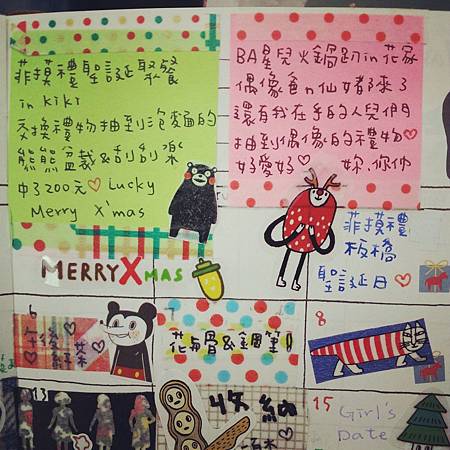 菲摸禮聖誕聚餐
in kiki
交換禮物抽到泡麵的
熊熊盆栽&刮刮樂
中了200元♡ Lucky
Merry X'mas
BA星兒火鍋趴in花家
偶像爸n仙姑都來了
還有我在乎的人兒們
抽到偶像的禮物♡
好愛好♡ 妳.你们
MERRY XMAS
菲摸禮
板橋
聖誕日♡
6
7
花与骨&鋼筆
8
13
15
Girl's
Date